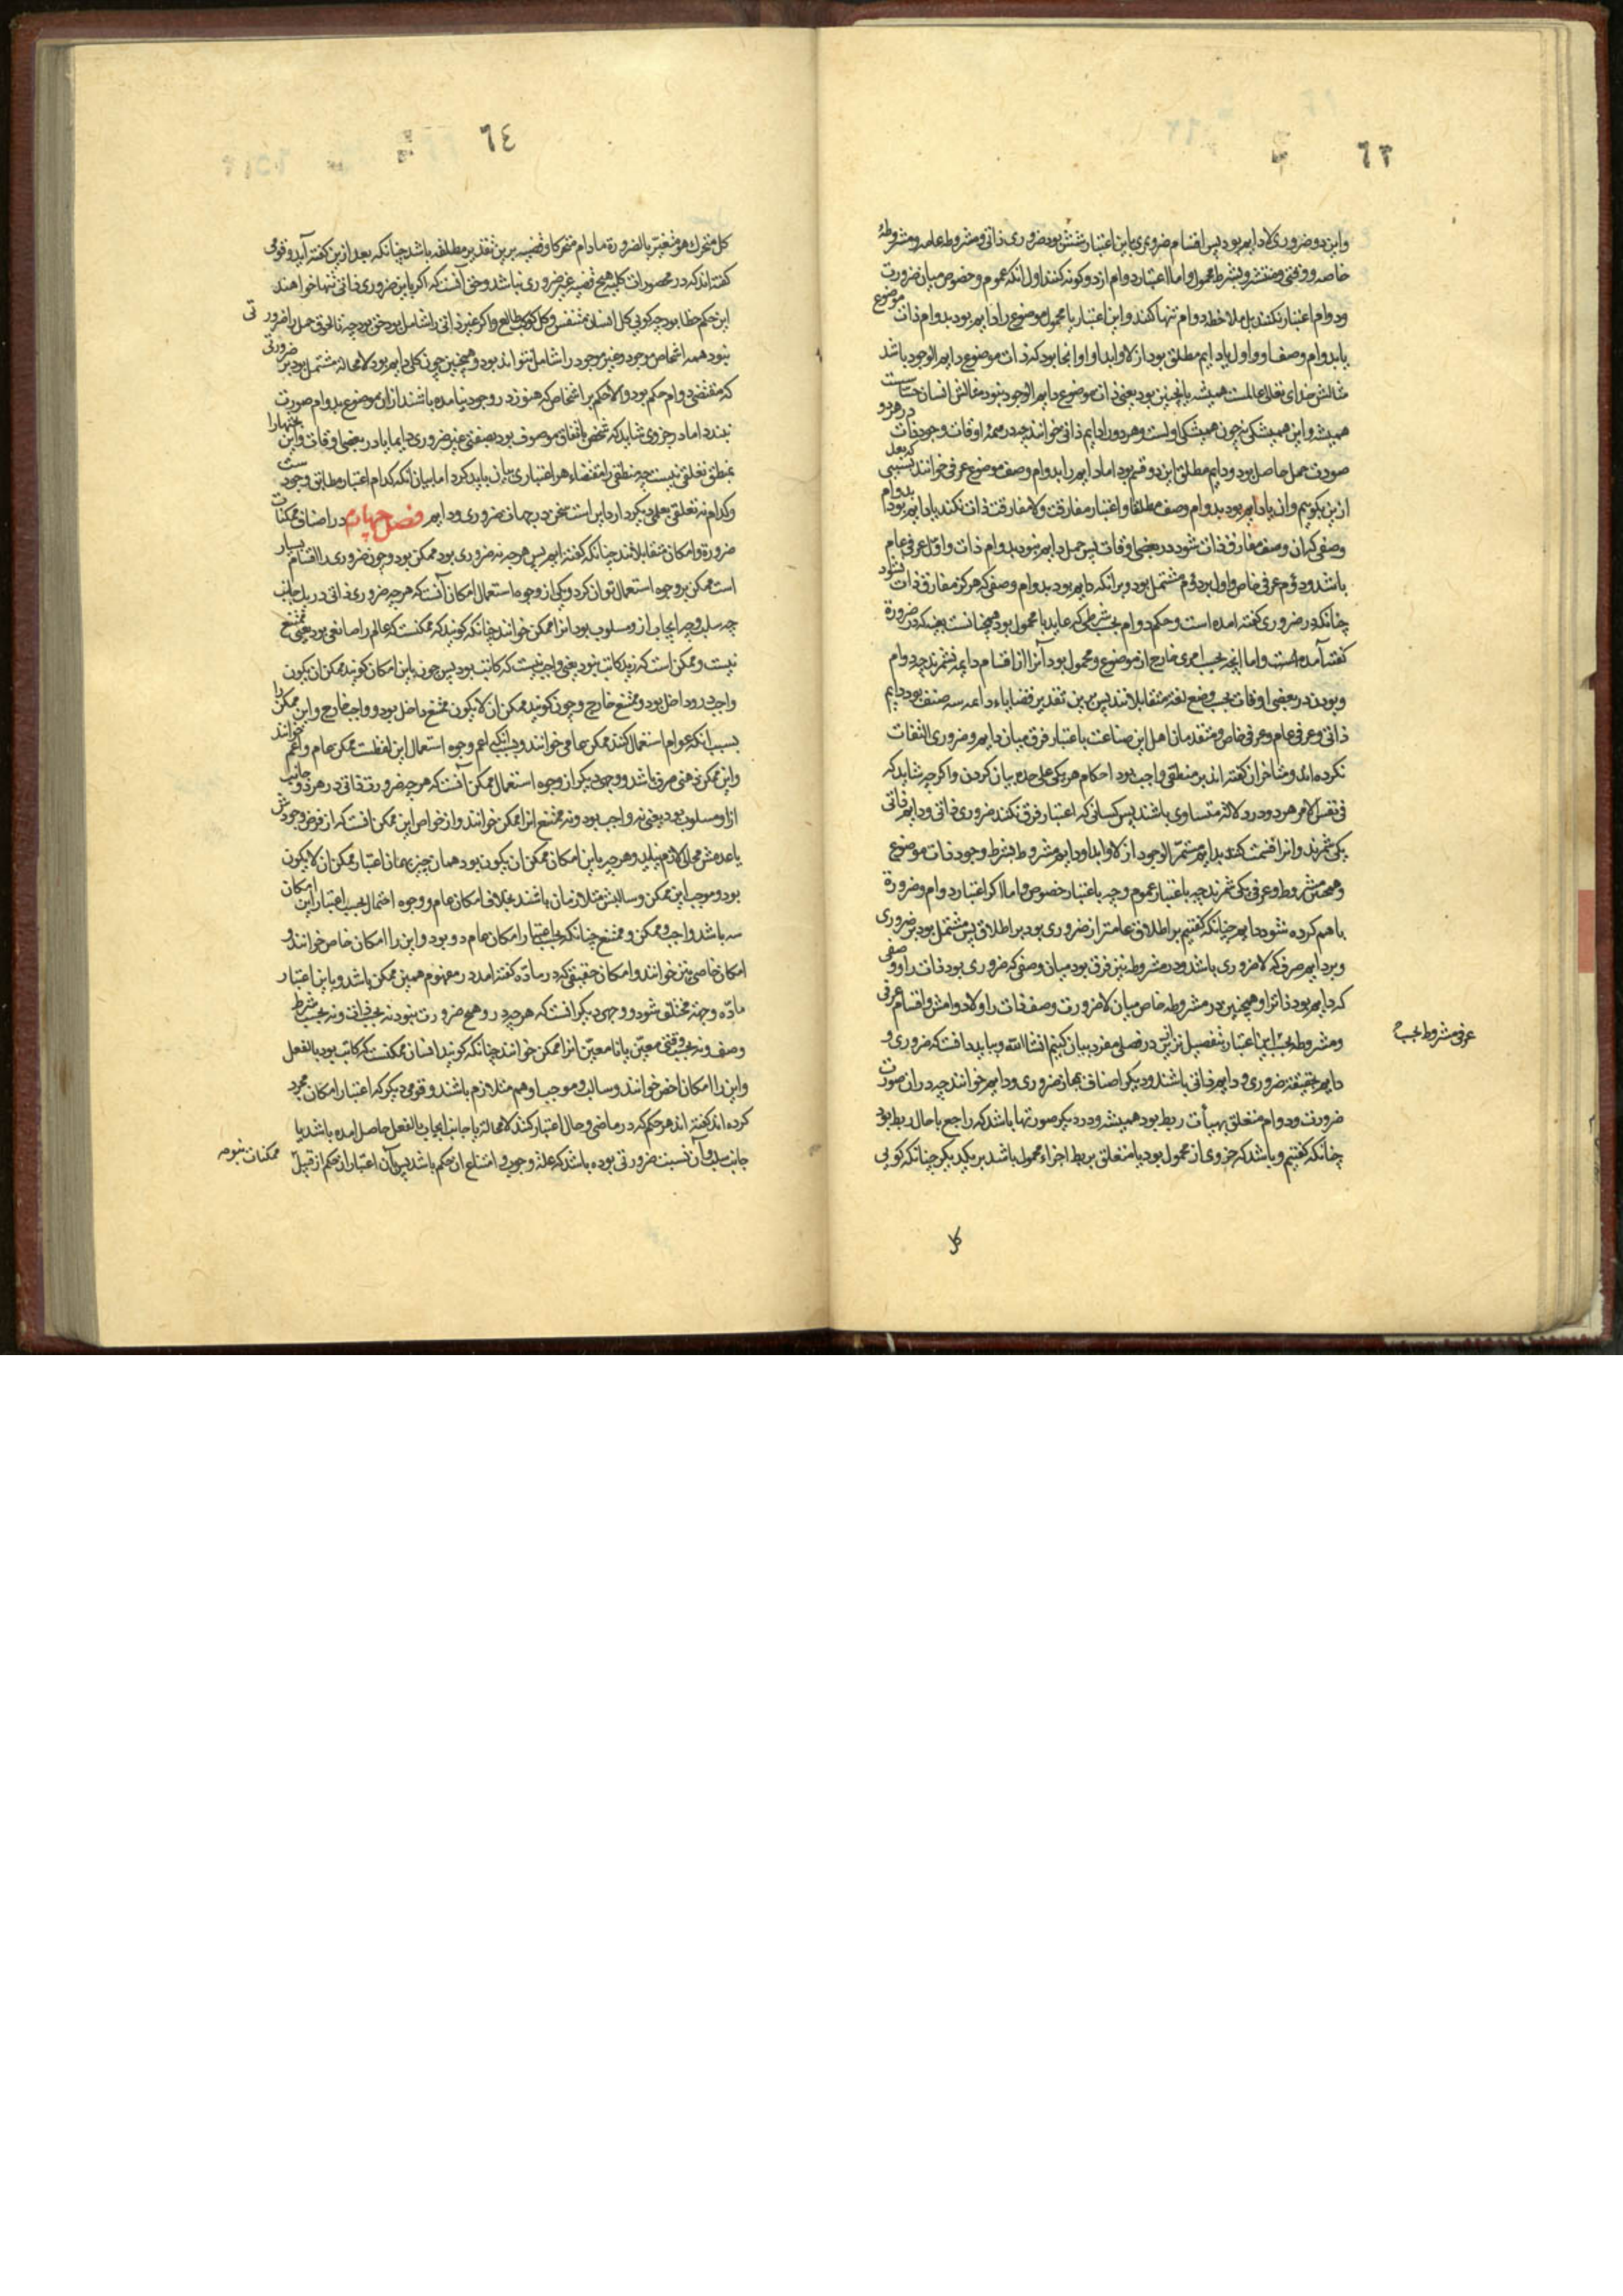 ٦٣
واین دو ضروری لادایم بود پس اقسام ضروری باین اعتبار شش بود ضروری ذاتی و مشروطه عامه و مشروطهٔ
خاصه و وقتی و منتشر و بشرط محمول و اما اعتبار دوام از دو گونه کنند اول انکه عموم و خصوص میان ضرورت
ودوام اعتبار نکنند بل ملاحظه دوام تنها کنند و این اعتبار یا محمول موضوع را دایم بود بدوام ذات موضوع
یا بدوام وصف او و اول یا دایم مطلق بود ازلا و ابدا و او انجا بود که ذات موضوع دایم الوجود باشد
مثالش خدای تعالی عالمست همیشه یا نچنین بود یعنی ذات موضوع دایم الوجود نبود مثالش انسان حساست
همیشه و این همیشگی نه چون همیشگی اولست و هر دو را دایم ذاتی خوانند چه در همهٔ اوقات وجود ذات در هر دو
صورت حمل حاصل بود و دایم مطلق این دو قسم بود اما دایم را بدوام وصف موضوع عرفی خوانند بسببی که بعد
ازین بگوییم وان یا دایم بود بدوام وصف مطلقا و اعتبار مفارقت ولا مفارقت ذات نکنند یا دایم بود بدوام
وصفی که ان وصف مفارق ذات شود در بعضی اوقات پس حمل دایم نبود بدوام ذات و اول عرفی عام
باشد و دوم عرفی خاص و اول بر دوم مشتمل بود و بر انکه دایم بود بدوام وصفی که هرگز مفارق ذات نشود
چنانکه در ضروری گفته امده است و حکم دوام بحسب شرطی که عاید با محمول بود همچنانست بعینه که در ضرورة
گفته آمده است و اما انچه بحسب امری خارج از موضوع و محمول بود آنرا از اقسام دایمه نشمرند چه دوام
و بودن در بعضی اوقات بحسب وضع لغة متقابلانند پس برین تقدیر قضایاء دائمه سه صنف بود دایم
ذاتی و عرفی عام و عرفی خاص و متقدمان اهل این صناعت باعتبار فرق میان دایم و ضروری التفات
نکرده اند و متاخران گفته اند بر منطقی واجب بود احکام هر یکی علی حده بیان کردن و اکر چه شاید که
فی نفس الامر هر دو در دلالة متساوی باشند پس کسانی که اعتبار فرق نکنند ضروری ذاتی و دایم ذاتی
یکی شمرند و انرا قسمت کنند بدایم مستمر الوجود ازلا و ابدا و دایم مشروط بشرط وجود ذات موضوع
وهمچنین مشروط و عرفی یکی شمرند چه باعتبار عموم و چه باعتبار خصوص و اما اکر اعتبار دوام و ضرورة
باهم کرده شود دایم چنانکه گفتیم بر اطلاق عامتر از ضروری بود بر اطلاق پس مشتمل بود بر ضروری
و بر دایم صرف که لا ضروری باشد و در مشروطه نیز فرق بود میان وصفی که ضروری بود ذات را و وصفی
که دایم بود ذاترا و همچنین در مشروطه خاص میان لا ضرورت وصف ذات را و لا دوامش و اقسام عرفی
ومشروطه بحسب این اعتبار بتفصیل تر ازین در فصلی مفرد بیان کنیم انشا الله و بباید دانست که ضروری و
دایم بحقیقة ضروری و دایم ذاتی باشند و دیگر اصناف بمجاز ضروری و دایم خوانند چه در ان صورت
ضرورت و دوام متعلق بهیأت ربط بود همیشه و در دیگر صورتها باشد که راجع با حال ربط بود
چنانکه گفتیم و باشد که جزوی از محمول بود یا متعلق بربط اجزاء محمول باشد بر یکدیگر چنانکه گوئی
عرفی مشروط بحسب
کل
٦٤
کل متحرك هو متغیر بالضرورة ما دام متحرکا و قضیه برین تقدیر مطلقه باشد چنانکه بعد ازین گفته آید و قومی
گفته اند که در محصورات کلیه هیچ قضیه غیر ضروری نباشد و حق آنست که اگر باین ضروری ذاتی تنها خواهند
این حکم خطا بود چه گویی کل انسان متنفس و کل کوکب طالع و اگر غیر ذاتی را شامل بود حق بود چه تا لحوق حمل را ضرورتی
نبود همه اشخاص موجود و غیر موجود را شامل نتواند بود و همچنین چون کلی دایم بود لا محاله مشتمل بود بر ضرورتی
که مقتضی دوام حکم بود و الا حکم بر اشخاص که هنوز در وجود نیامده باشند ازان موضوع بدوام صورت
نبندد اما در جزوی شاید که شخصی باتفاق موصوف بود بصفتی غیر ضروری دایما یا در بعضی اوقات و این بحثها را
بمنطق تعلقی نیست چه منطقی را مقتضاء هر اعتباری بیان باید کرد اما بیان انکه کدام اعتبار مطابق وجودست
و کدام نه تعلق بعلمی دیگر دارد اینست سخن در جهات ضروری و دایم فصل چهارم در اصناف ممکنات
ضرورة و امکان متقابلانند چنانکه گفته ایم پس هر چه نه ضروری بود ممکن بود و چون ضروری را اقسام بسیار
است ممکن بر وجوه استعمال توان کرد و یکی از وجوه استعمال امکان آنست که هر چه ضروری ذاتی در یك جانب
چه سلب و چه ایجاب از و مسلوب بود انرا ممکن خوانند چنانکه گویند که ممکنست که عالم را صانعی بود یعنی ممتنع
نیست و ممکن است که زید کاتب نبود یعنی واجب نیست که کاتب بود پس چون باین امکان گویند ممکن ان یکون
واجب درو داخل بود و ممتنع خارج و چون گویند ممکن ان لا یکون ممتنع داخل بود و واجب خارج و این ممکن را
بسبب انکه عوام استعمال کنند ممکن عامی خوانند و بسبب انکه اعم وجوه استعمال این لفظست ممکن عام و اعم خوانند
و این ممکن ذهنی صرف باشد و وجهی دیگر از وجوه استعمال ممکن آنست که هر چه ضرورت ذاتی در هر دو جانب
ازو مسلوب بود یعنی نه واجب بود و نه ممتنع انرا ممکن خوانند و از خواص این ممکن انست که از فرض وجودش
یا عدمش محالی لازم نیاید و هر چه باین امکان ممکن ان یکون بود همان چیز بهمان اعتبار ممکن ان لا یکون
بود و موجب این ممکن و سالبش متلازمان باشند بخلاف امکان عام و وجوه احتمال بحسب اعتبار این امکان
سه باشد واجب و ممکن و ممتنع چنانکه بحسب اعتبار امکان عام دو بود و این را امکان خاص خوانند و
امکان خاصی نیز خوانند و امکان حقیقی که در ماده گفته امد در مفهوم همین ممکن باشد و باین اعتبار
ماده و جهة مختلف شود و وجهی دیگر انست که هر چه درو هیچ ضرورت نبود نه بحسب ذات و نه بحسب شرط
وصف و نه بحسب وقتی معین یا نا معین انرا ممکن خوانند چنانکه گویند انسان ممکنست که کاتب بود بالفعل
و این را امکان اخص خوانند و سالب و موجب او هم متلازم باشند و قومی دیگر که اعتبار امکان مجرد
کرده اند گفته اند هر حکم که در ماضی و حال اعتبار کنند لا محاله یا جانب ایجاب بالفعل حاصل امده باشد یا
جانب سلب و آن نسبت ضرورتی بوده باشد که علة وجوب و امتناع ان حکم باشد پس آن اعتبار از حکم از قبیل
ممکنات نبود چه